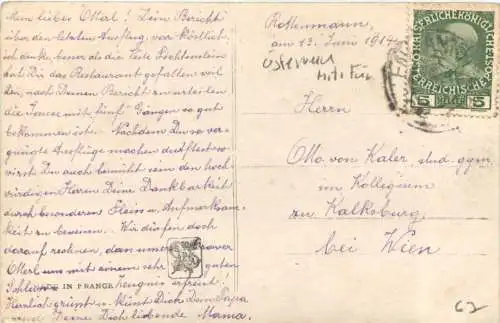 Mein lieber Otterl! Dein Bericht
über den letzten Ausflug, war köstlich,
ich denke, besser als die Feste Liechtenstein
hat Dir das Restaurant gefallen wol
len, nach Deinem Bericht zu urteilen
die Jause mit fünf Gängen so gut
bekommen ist. Nachdem Du so ver-
gnügte Ausflüge machen durftest so
wirst Du auch bemüht sein den hoch
würdigen Herren Deine Dankbarkeit
durch besonderen Fleiss u. Aufmerksam
keit zu beweisen. Wir dürfen doch
darauf rechnen, dass unser braver
Otterl uns mit einem sehr guten
Zeugnis erfreut.
Herzlich grüsst u. küsst Dich Dein Papa
und Deine Dich liebende Mama.
MADE IN FRANCE
Rottenmann,
am 13. Juni 1914
Herrn
Otto von Kaler, stud. gym.
im Kollegium
zu Kalksburg
bei Wien
KAISERLICHE KÖNIGLICHE
ÖSTERREICHISCHE
5 5
62